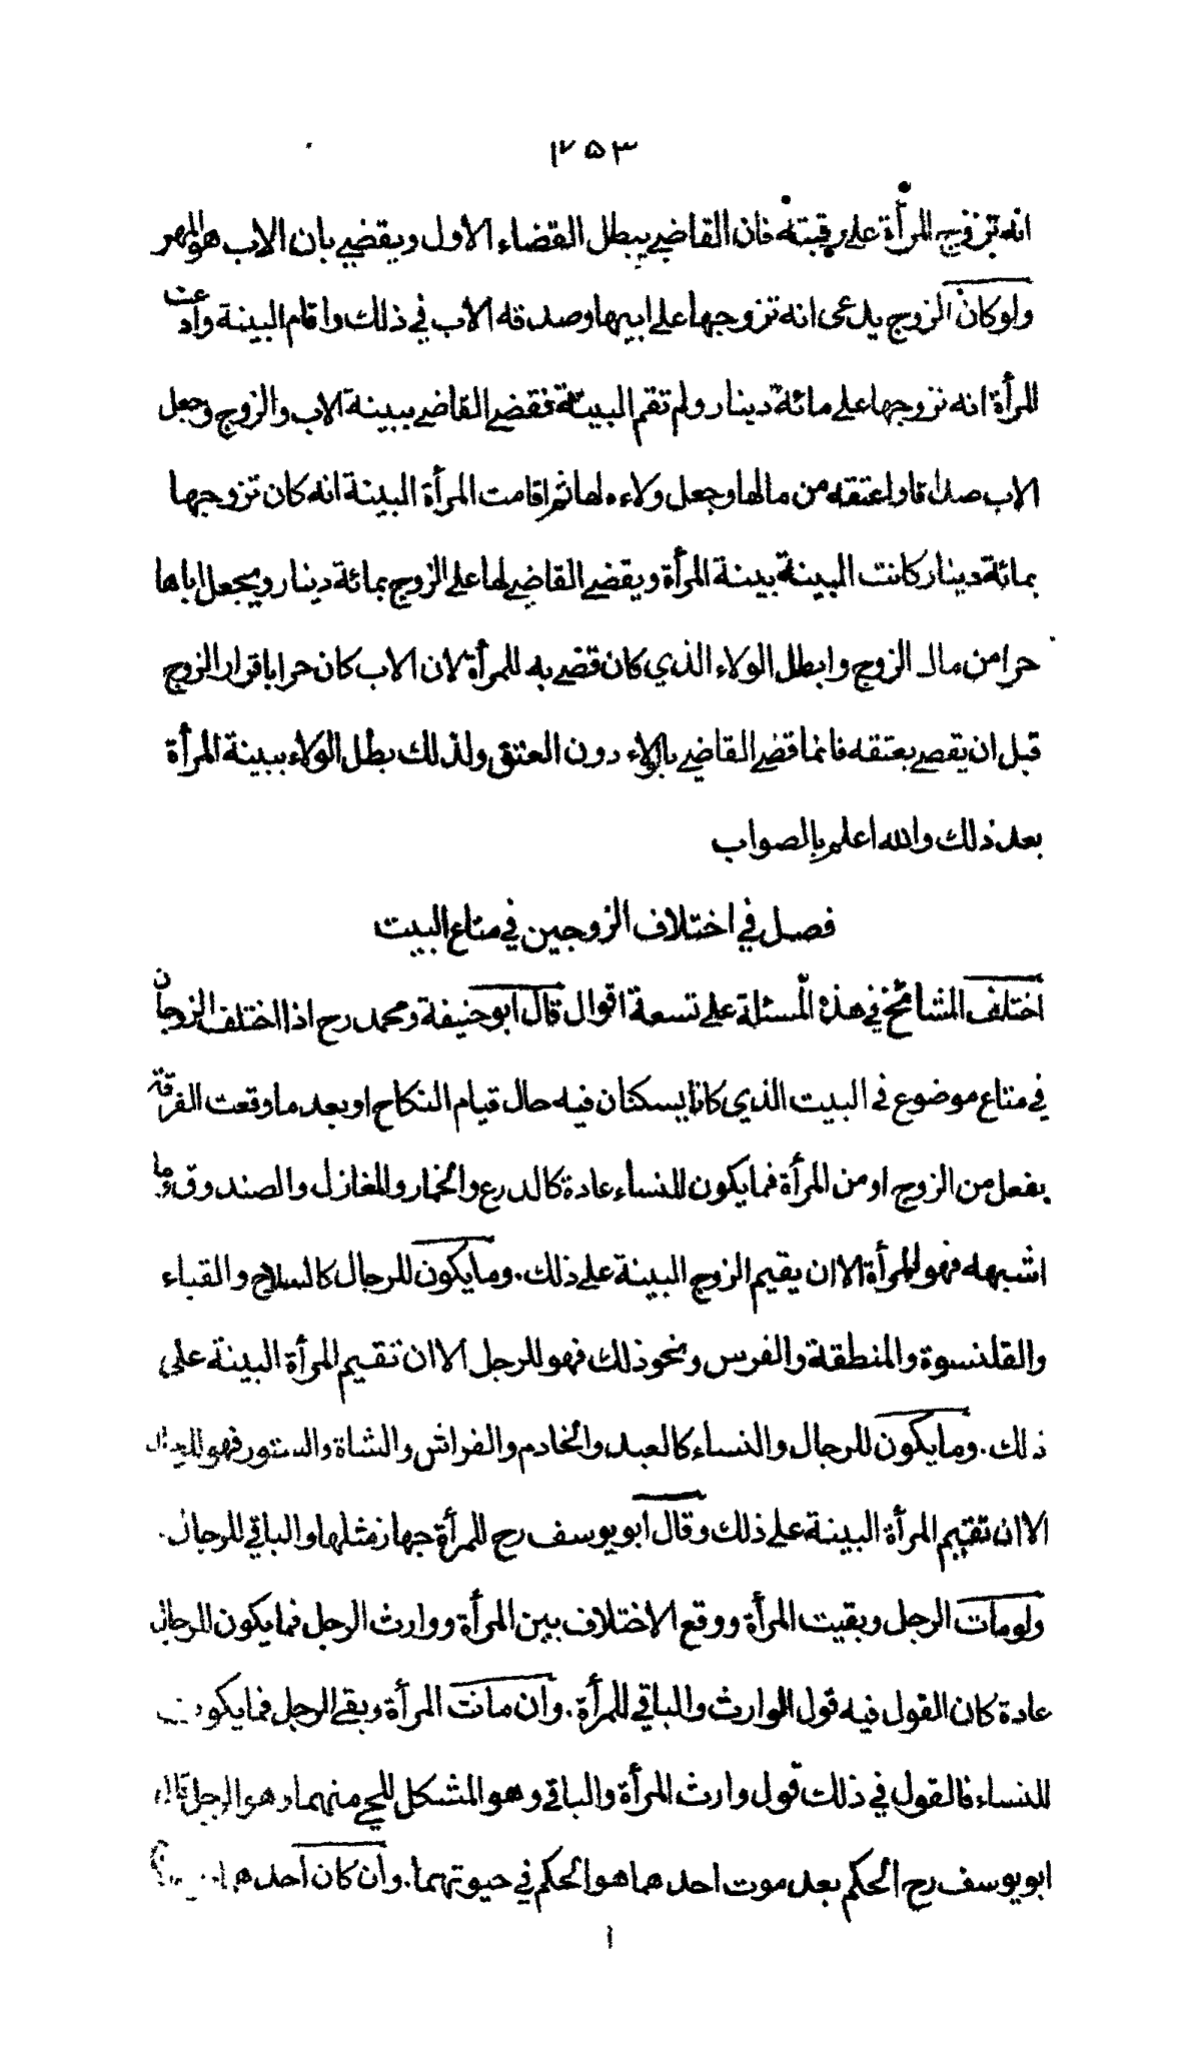 ١٢٥٣
انه تزوج المرأة على رقبته فان القاضي يبطل القضاء الاول ويقضي بان الاب هو المهر
ولو كان الزوج يدعى انه تزوجها على ابيها وصدقه الاب في ذلك واقام البينة وادعت
المرأة انه تزوجها على مائة دينار ولم تقم البينة فقضى القاضي ببينة الاب والزوج وجعل
الاب صداقا واعتقه من مالها وجعل ولاءه لها ثم اقامت المرأة البينة انه كان تزوجها
بمائة دينار كانت البينة بينة المرأة ويقضى القاضي لها على الزوج بمائة دينار ويجعل اباها
حرا من مال الزوج وابطل الولاء الذي كان قضى به للمرأة لان الاب كان حرا باقرار الزوج
قبل ان يقضي بعتقه فانما قضى القاضي بالولاء دون العتق ولذلك بطل الولاء ببينة المرأة
بعد ذلك والله اعلم بالصواب
فصل في اختلاف الزوجين في متاع البيت
اختلف المشائخ في هذه المسئلة على تسعة اقوال قال ابو حنيفة ومحمد رح اذا اختلف الزوجان
في متاع موضوع في البيت الذي كانا يسكنان فيه حال قيام النكاح او بعد ما وقعت الفرقة
بفعل من الزوج او من المرأة فما يكون للنساء عادة كالدرع والخمار والمغازل والصندوق وما
اشبهه فهو للمرأة الا ان يقيم الزوج البينة على ذلك. وما يكون للرجال كالسلاح والقباء
والقلنسوة والمنطقة والفرس ونحو ذلك فهو للرجل الا ان تقيم المرأة البينة على
ذلك. وما يكون للرجال والنساء كالعبد والخادم والفراش والشاة والستور فهو للرجال
الا ان تقيم المرأة البينة على ذلك وقال ابو يوسف رح للمرأة جهاز مثلها والباقي للرجال.
ولو مات الرجل وبقيت المرأة ووقع الاختلاف بين المرأة ووارث الرجل فما يكون للرجال
عادة كان القول فيه قول الوارث والباقي للمرأة. وان ماتت المرأة وبقي الرجل فما يكون
للنساء فالقول في ذلك قول وارث المرأة والباقي وهو المشكل للحي منهما وهو الرجل قال
ابو يوسف رح الحكم بعد موت احدهما هو الحكم في حيوتهما. وان كان احدهما